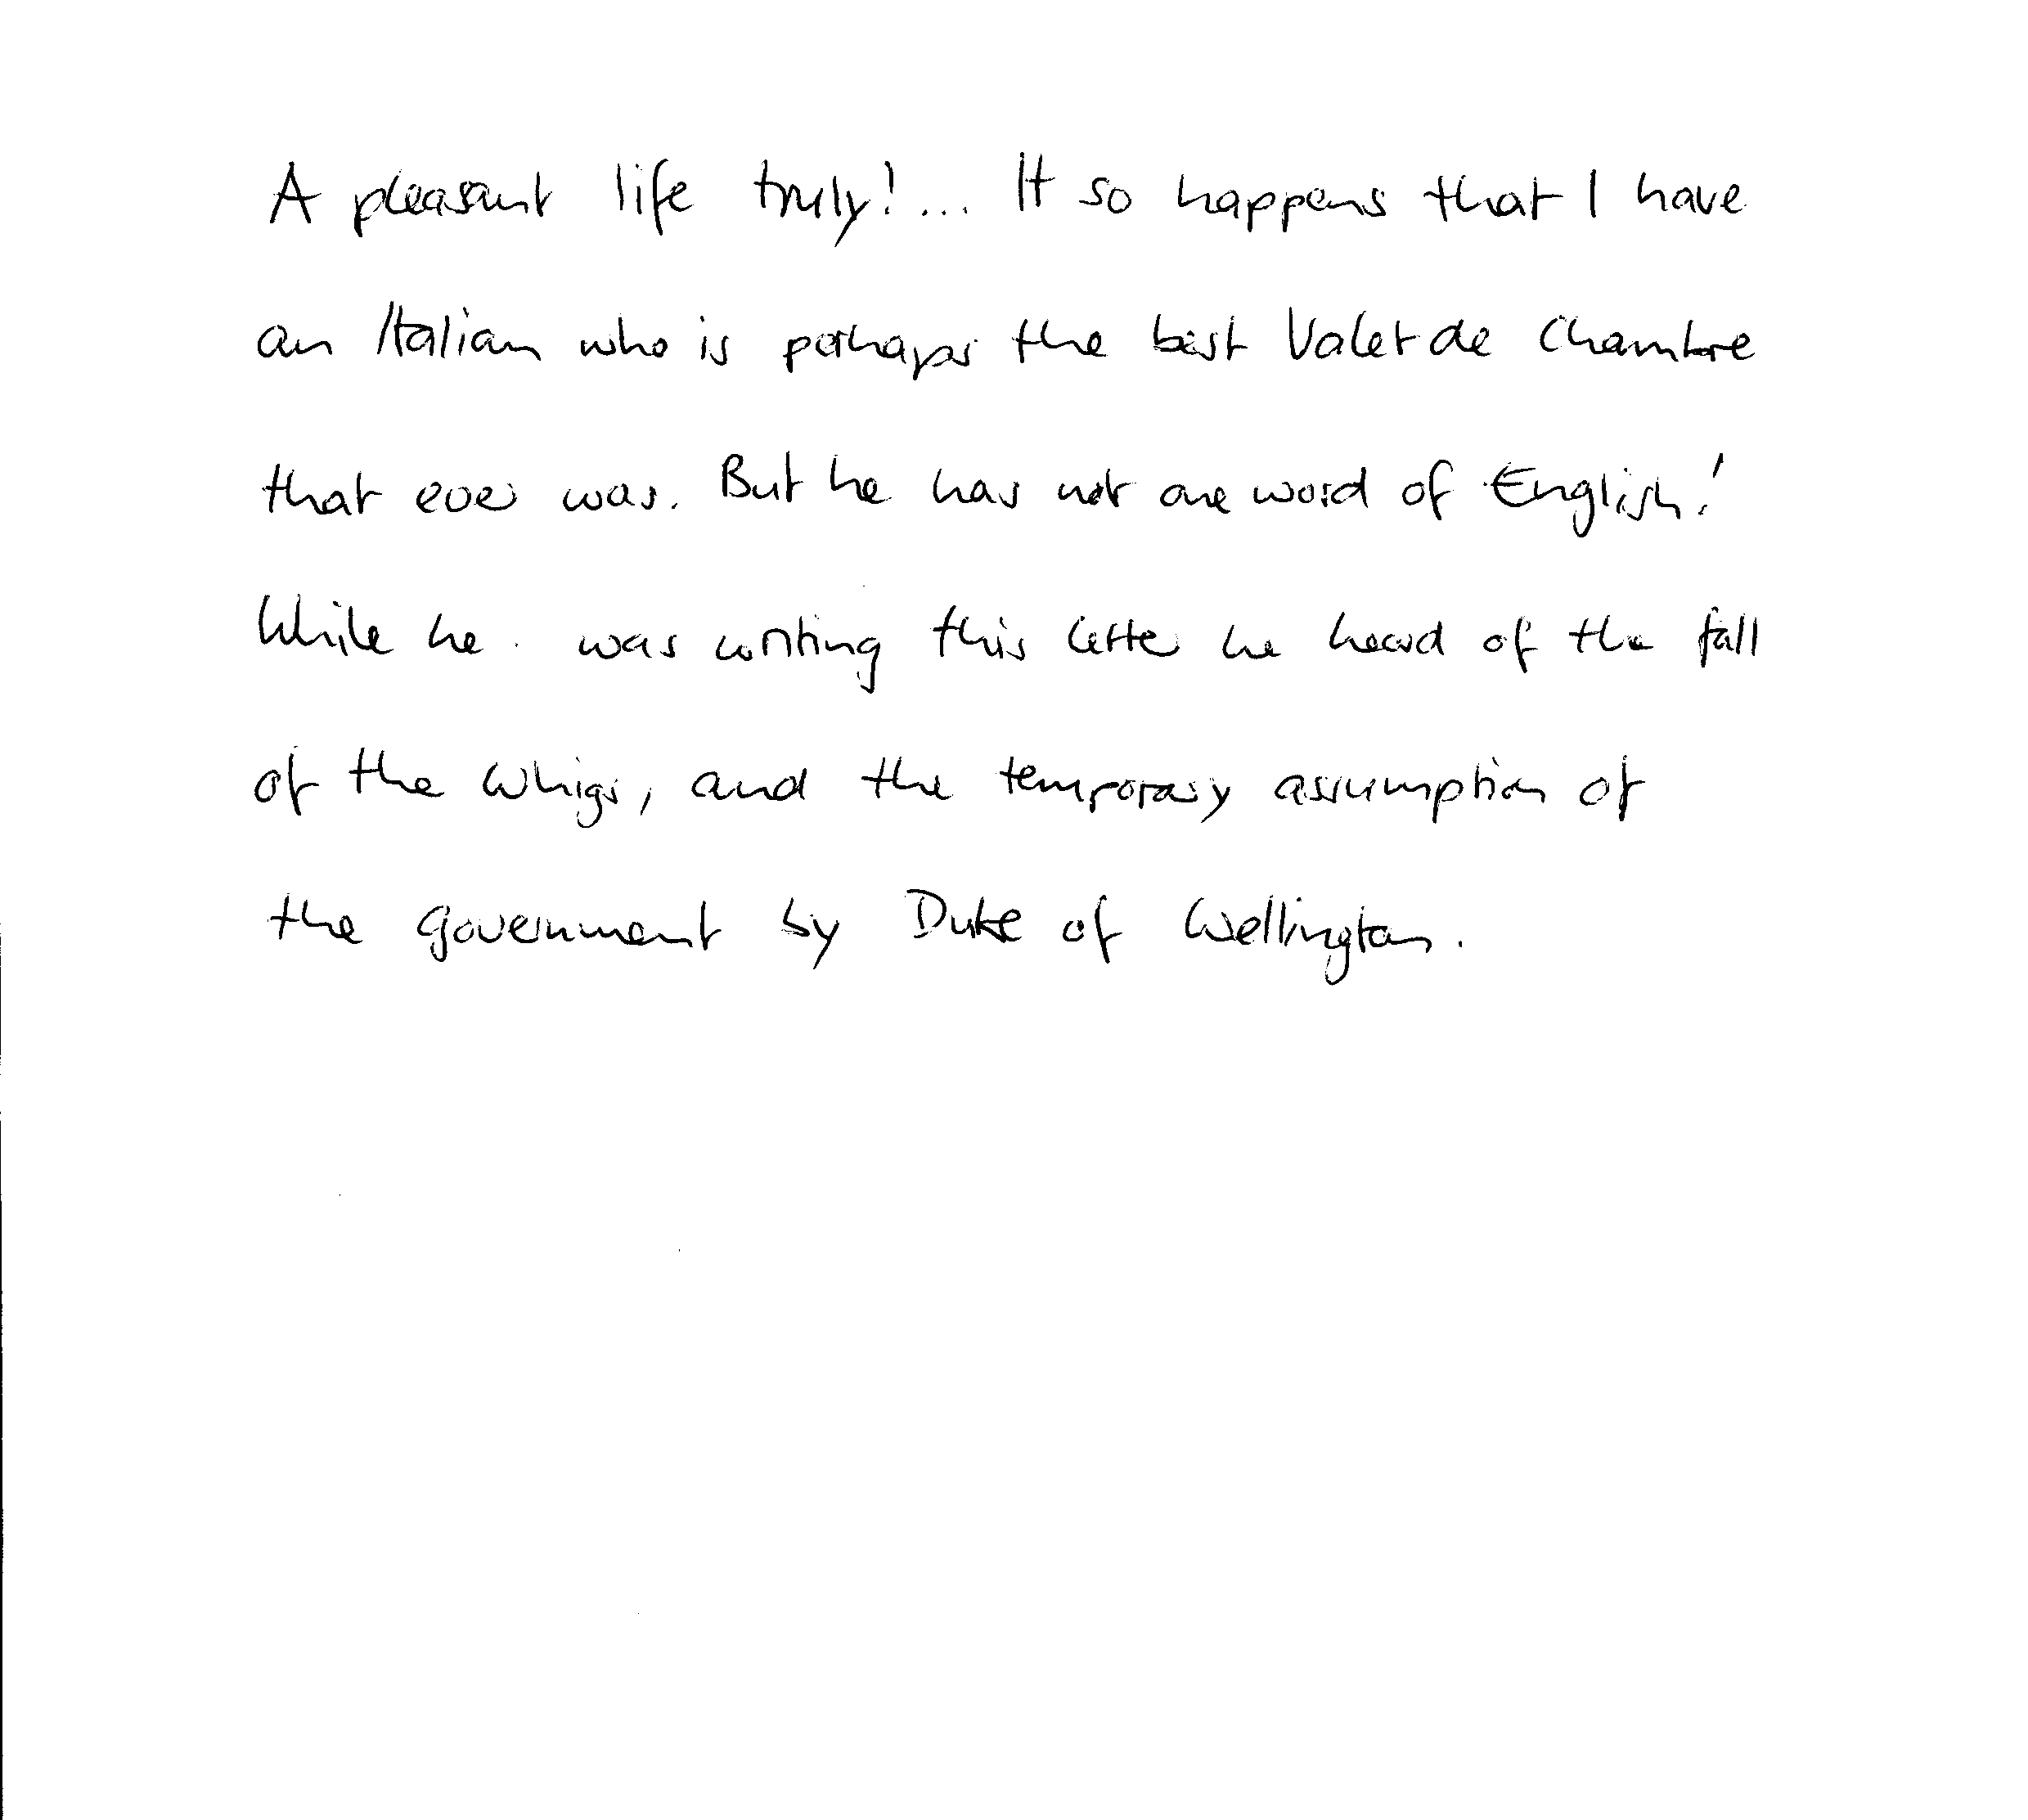 A pleasant life truly!... It so happens that I have
an Italian who is perhaps the best Valet de Chambre
that ever was. But he has not one word of English!
While he was writing this letter he heard of the fall
of the Whigs, and the temporary assumption of
the government by Duke of Wellington.